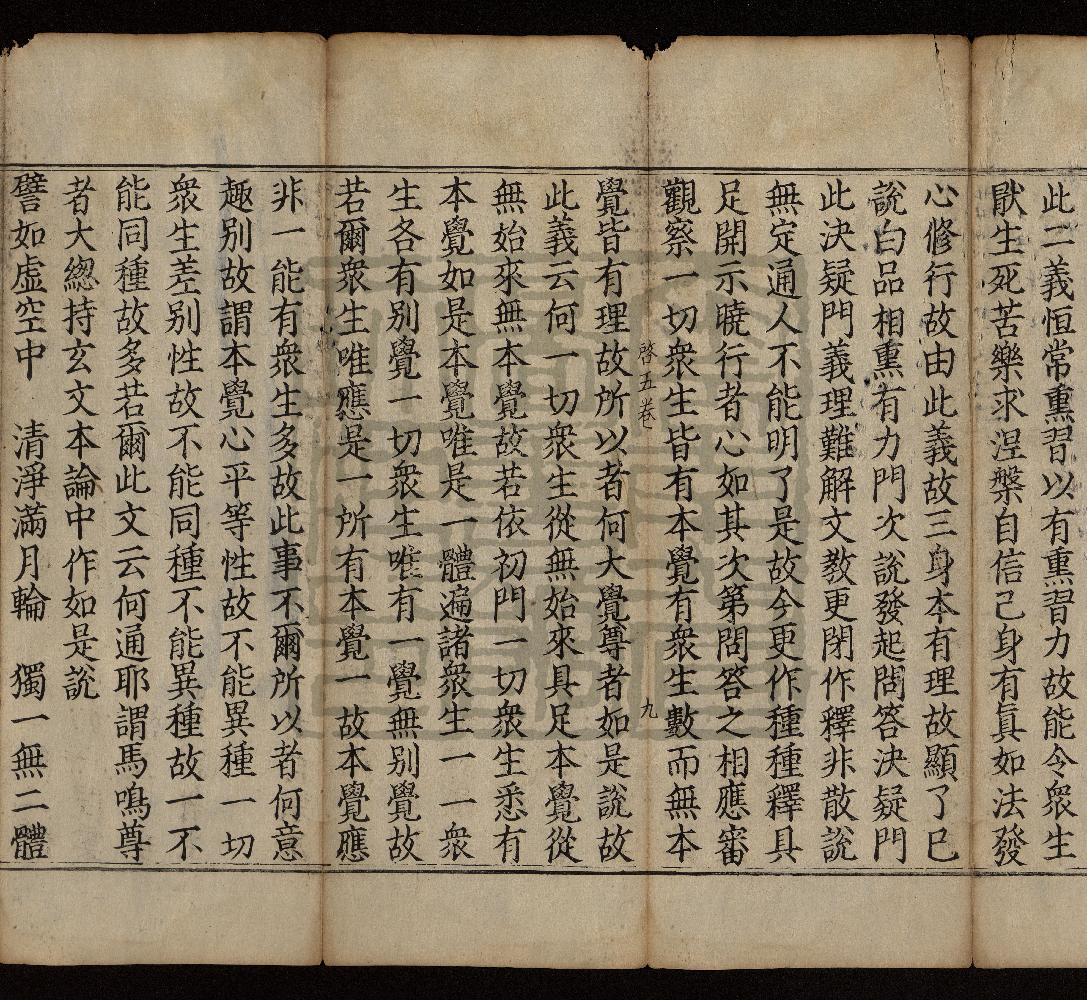 此二義恒常熏習以有熏習力故能令衆生
猒生死苦樂求涅槃自信己身有真如法發
心修行故由此義故三身本有理故顯了已
說白品相熏有力門次說發起問答決疑門
此決疑門義理難解文教更閉作釋非散說
無定通人不能明了是故今更作種種釋具
足開示曉行者心如其次第問答之相應審
觀察一切衆生皆有本覺有衆生數而無本
啓五卷 九
覺皆有理故所以者何大覺尊者如是說故
此義云何一切衆生從無始來具足本覺從
無始來無本覺故若依初門一切衆生悉有
本覺如是本覺唯是一體遍諸衆生一一衆
生各有別覺一切衆生唯有一覺無別覺故
若爾衆生唯應是一所有本覺一故本覺應
非一能有衆生多故此事不爾所以者何意
趣別故謂本覺心平等性故不能異種一切
衆生差別性故不能同種不能異種故一不
能同種故多若爾此文云何通耶謂馬鳴尊
者大惣持玄文本論中作如是說
譬如虛空中 清淨滿月輪 獨一無二體